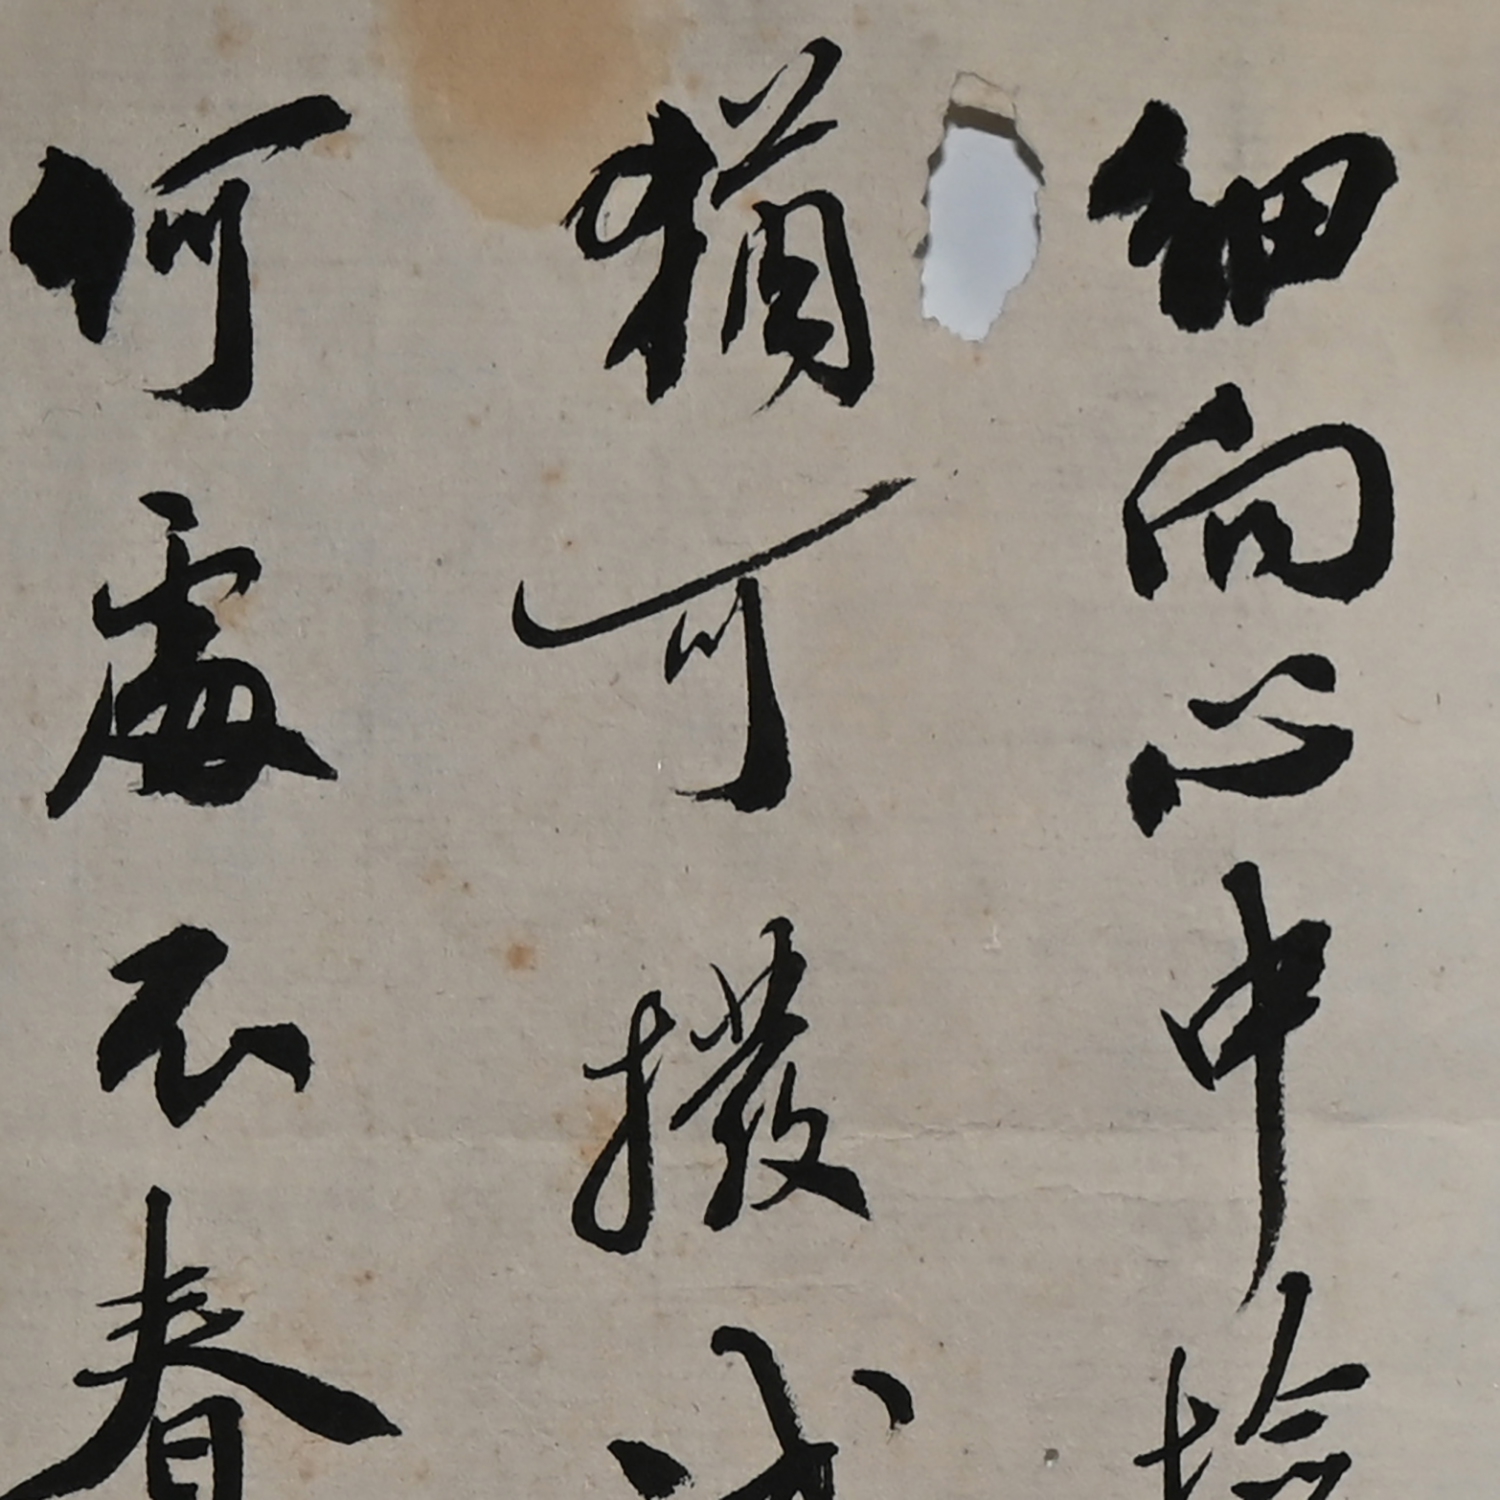 細向心中檢
猶可撥
何處不春